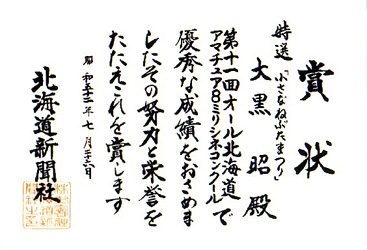 賞状
特選「小さなねぶたまつり」
大黒昭殿
第十一回オール北海道
アマチュア8ミリシネコンクールで
優秀な成績をおさめま
したその努力と栄誉を
たたえこれを賞します
昭和五十二年七月二十六日
北海道新聞社